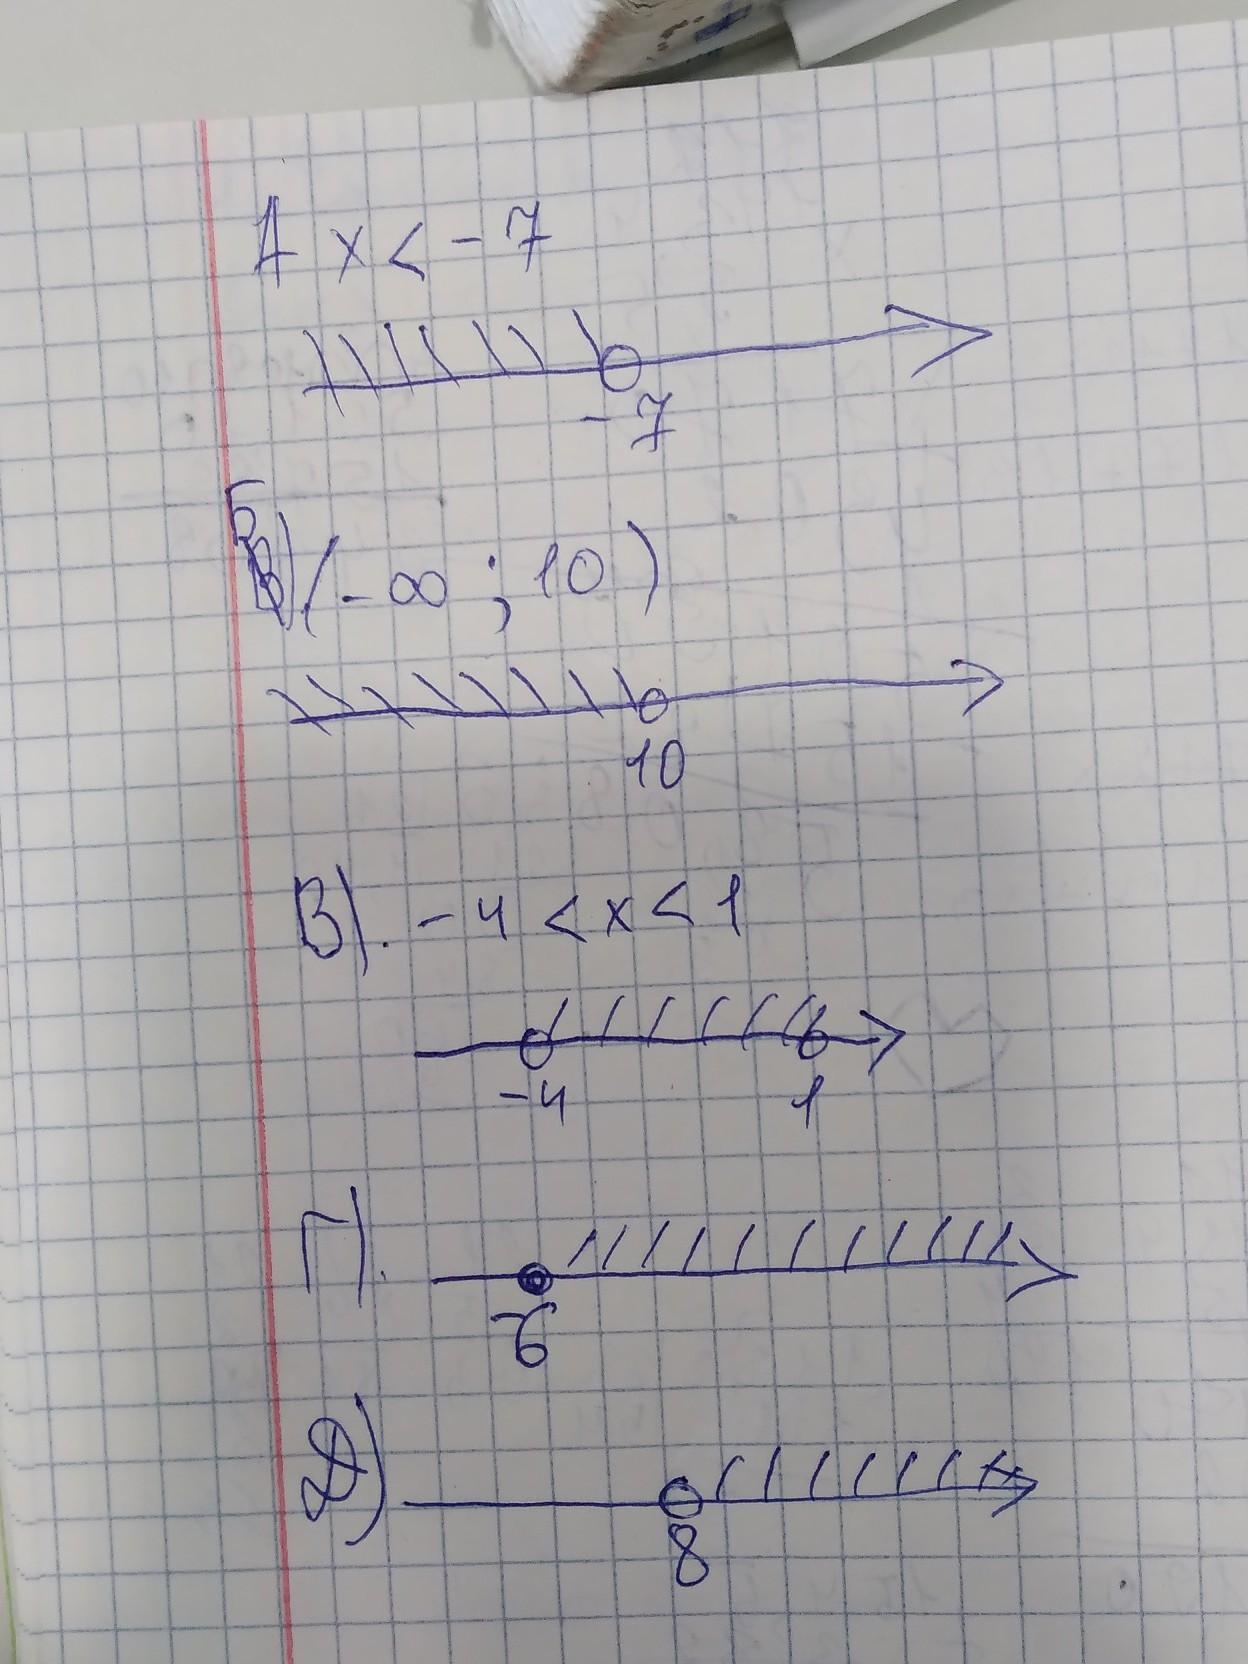 А x < -7
-7
Б) (-∞ ; 10)
10
В). -4 < x < 1
-4 1
Г).
8
Д)